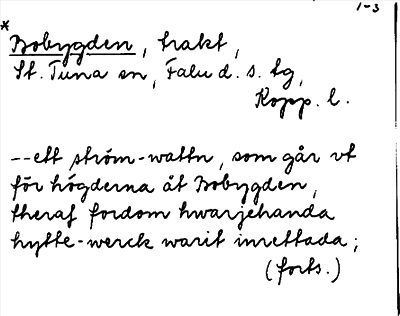 1-3
*
Bobygden, trakt,
St. Tuna sn, Falu d. s. tg,
Kopp. l.
--ett ström-wattn, som går vt
för högderna åt Bobygden,
theraf fordom hwarjehanda
hytte-werck warit inrettada;
(forts.)